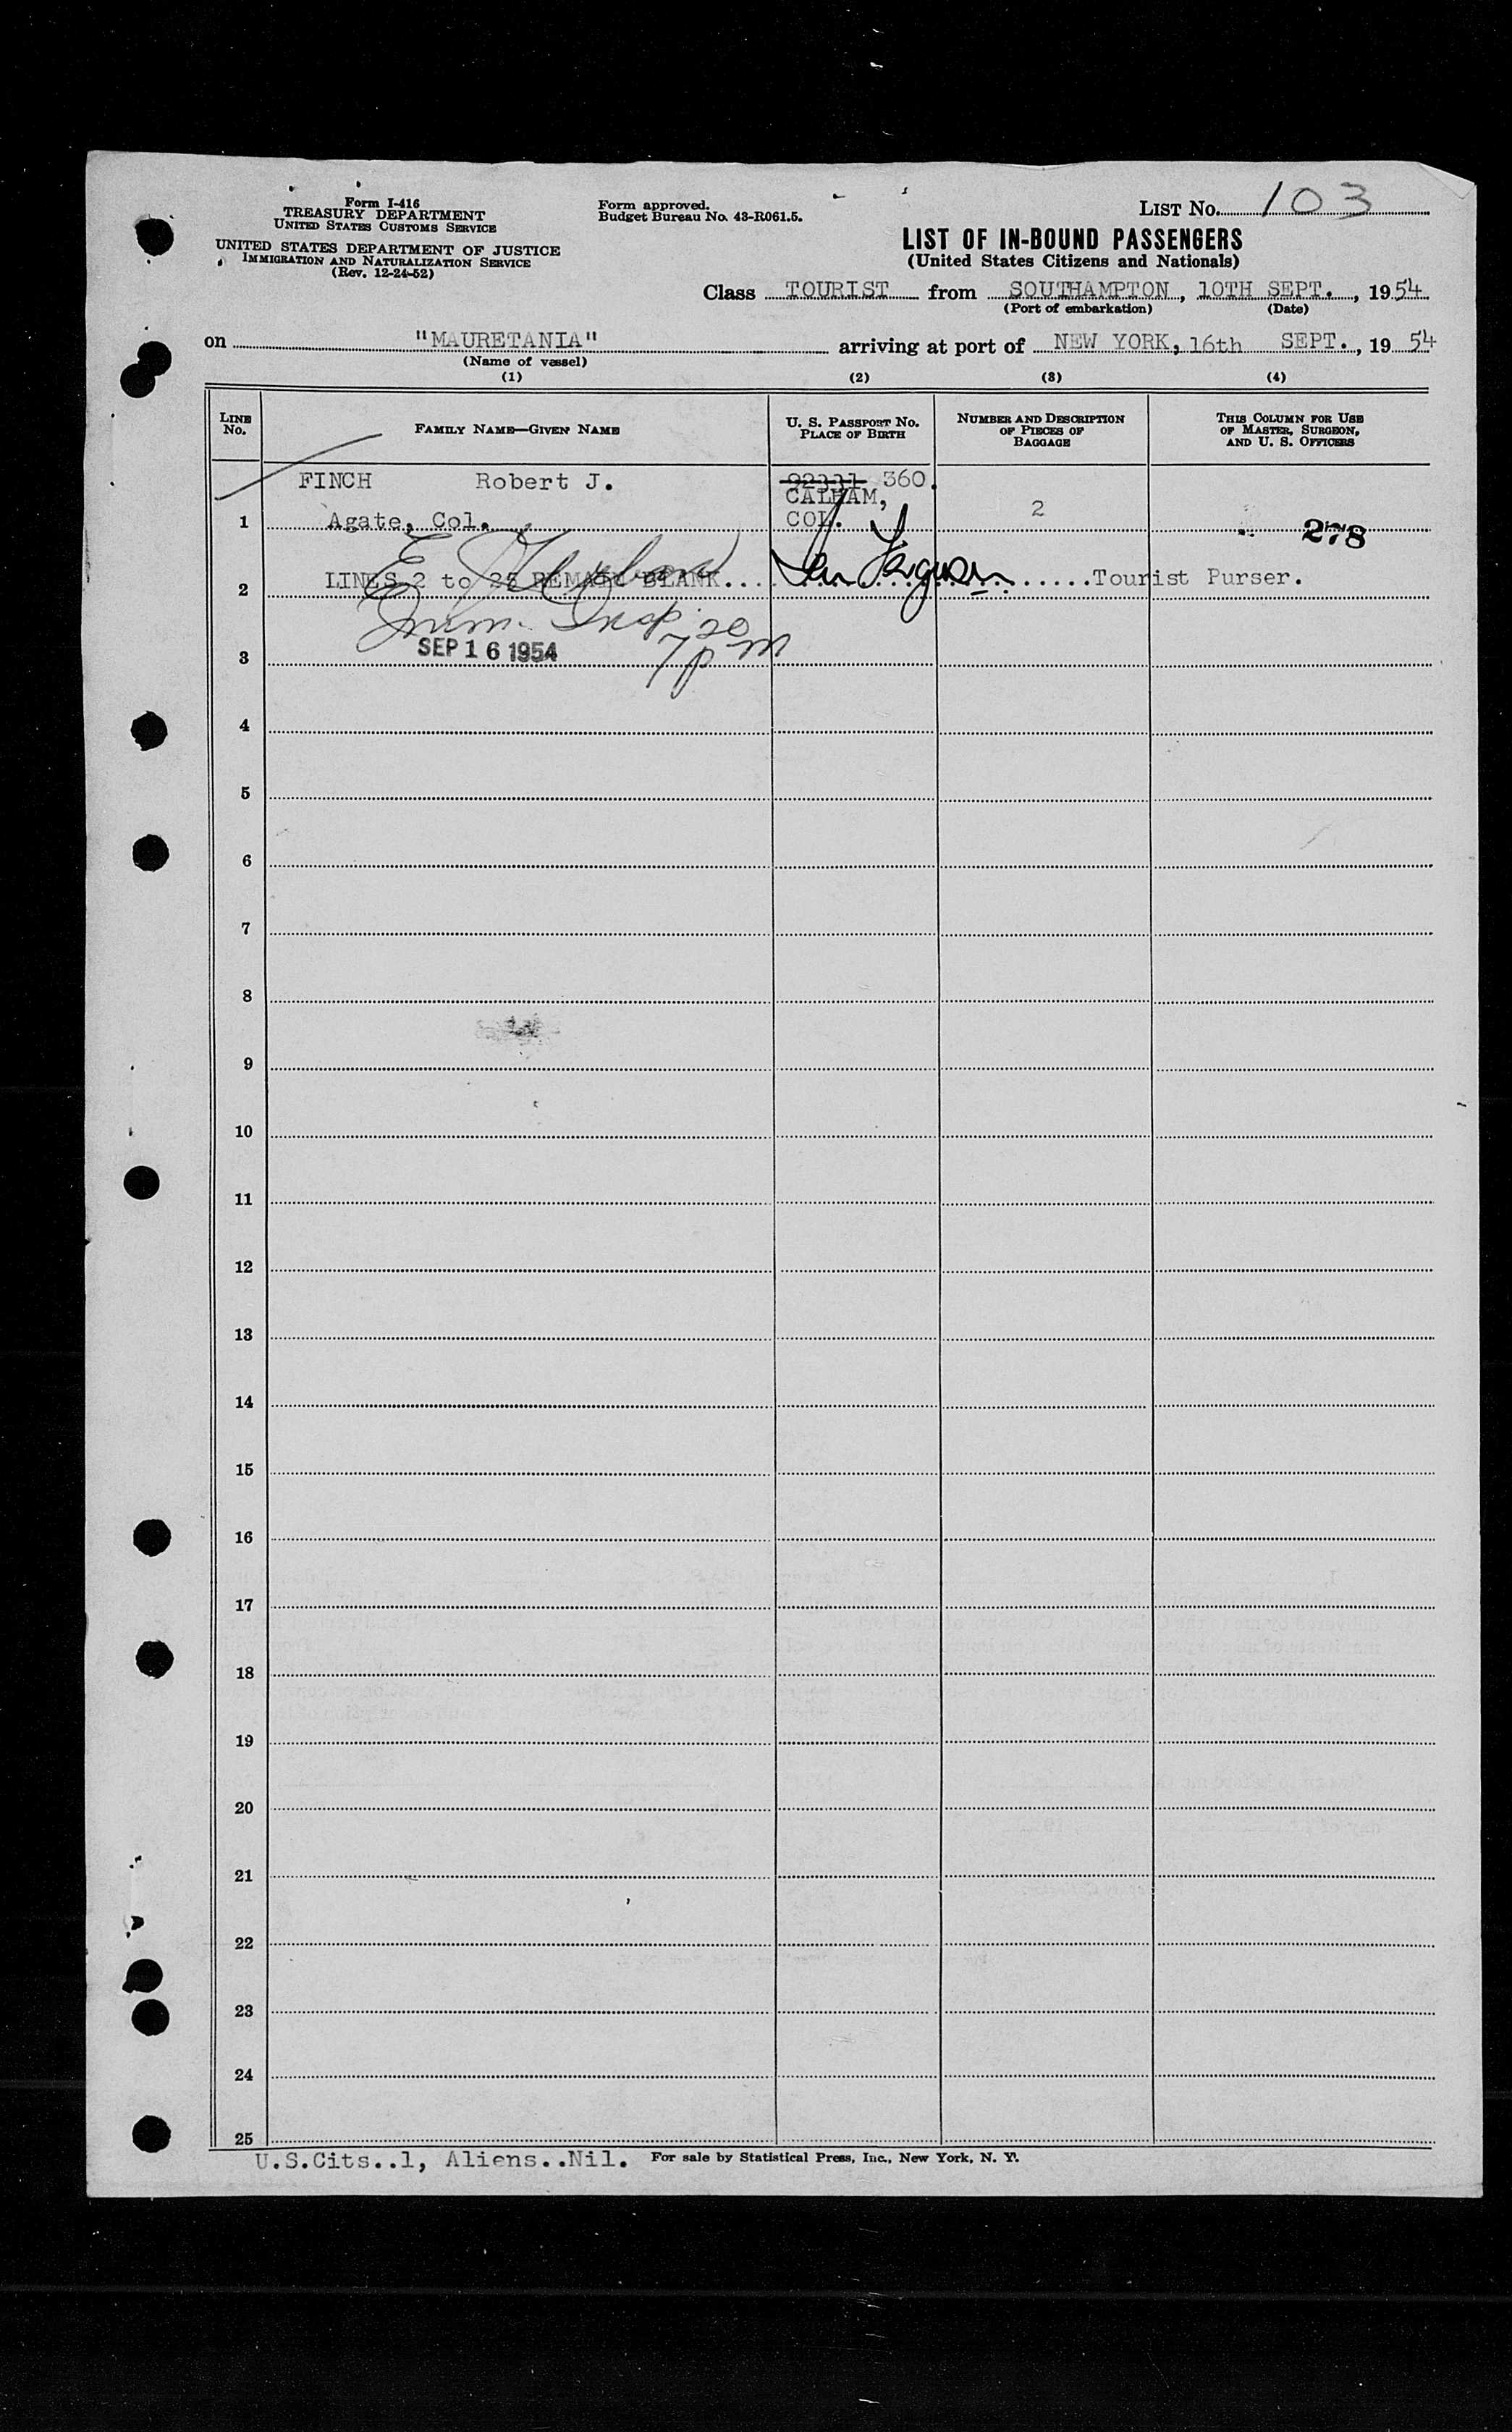 Form I-416
TREASURY DEPARTMENT
UNITED STATES CUSTOMS SERVICE
UNITED STATES DEPARTMENT OF JUSTICE
IMMIGRATION AND NATURALIZATION SERVICE
(Rev. 12-24-52)
Form approved.
Budget Bureau No. 43-R061.5.
LIST No. 103
LIST OF IN-BOUND PASSENGERS
(United States Citizens and Nationals)
Class TOURIST from SOUTHAMPTON, 10TH SEPT., 1954
(Port of embarkation) (Date)
on "MAURETANIA" arriving at port of NEW YORK, 16th SEPT., 1954
(Name of vessel)
(1) (2) (3) (4)
LINE No.
FAMILY NAME—GIVEN NAME
U. S. PASSPORT No.
PLACE OF BIRTH
NUMBER AND DESCRIPTION
OF PIECES OF
BAGGAGE
THIS COLUMN FOR USE
OF MASTER, SURGEON,
AND U. S. OFFICERS
FINCH Robert J. 92331 360.
CALHAM,
1 Agate, Col. COL. 2 278
2 LINES 2 to 25 REMAIN BLANK.... Ferguson ......Tourist Purser.
Imm. Insp.
3 SEP 16 1954 7 20 pm
4
5
6
7
8
9
10
11
12
13
14
15
16
17
18
19
20
21
22
23
24
25
U.S.Cits..1, Aliens..Nil. For sale by Statistical Press, Inc., New York, N. Y.